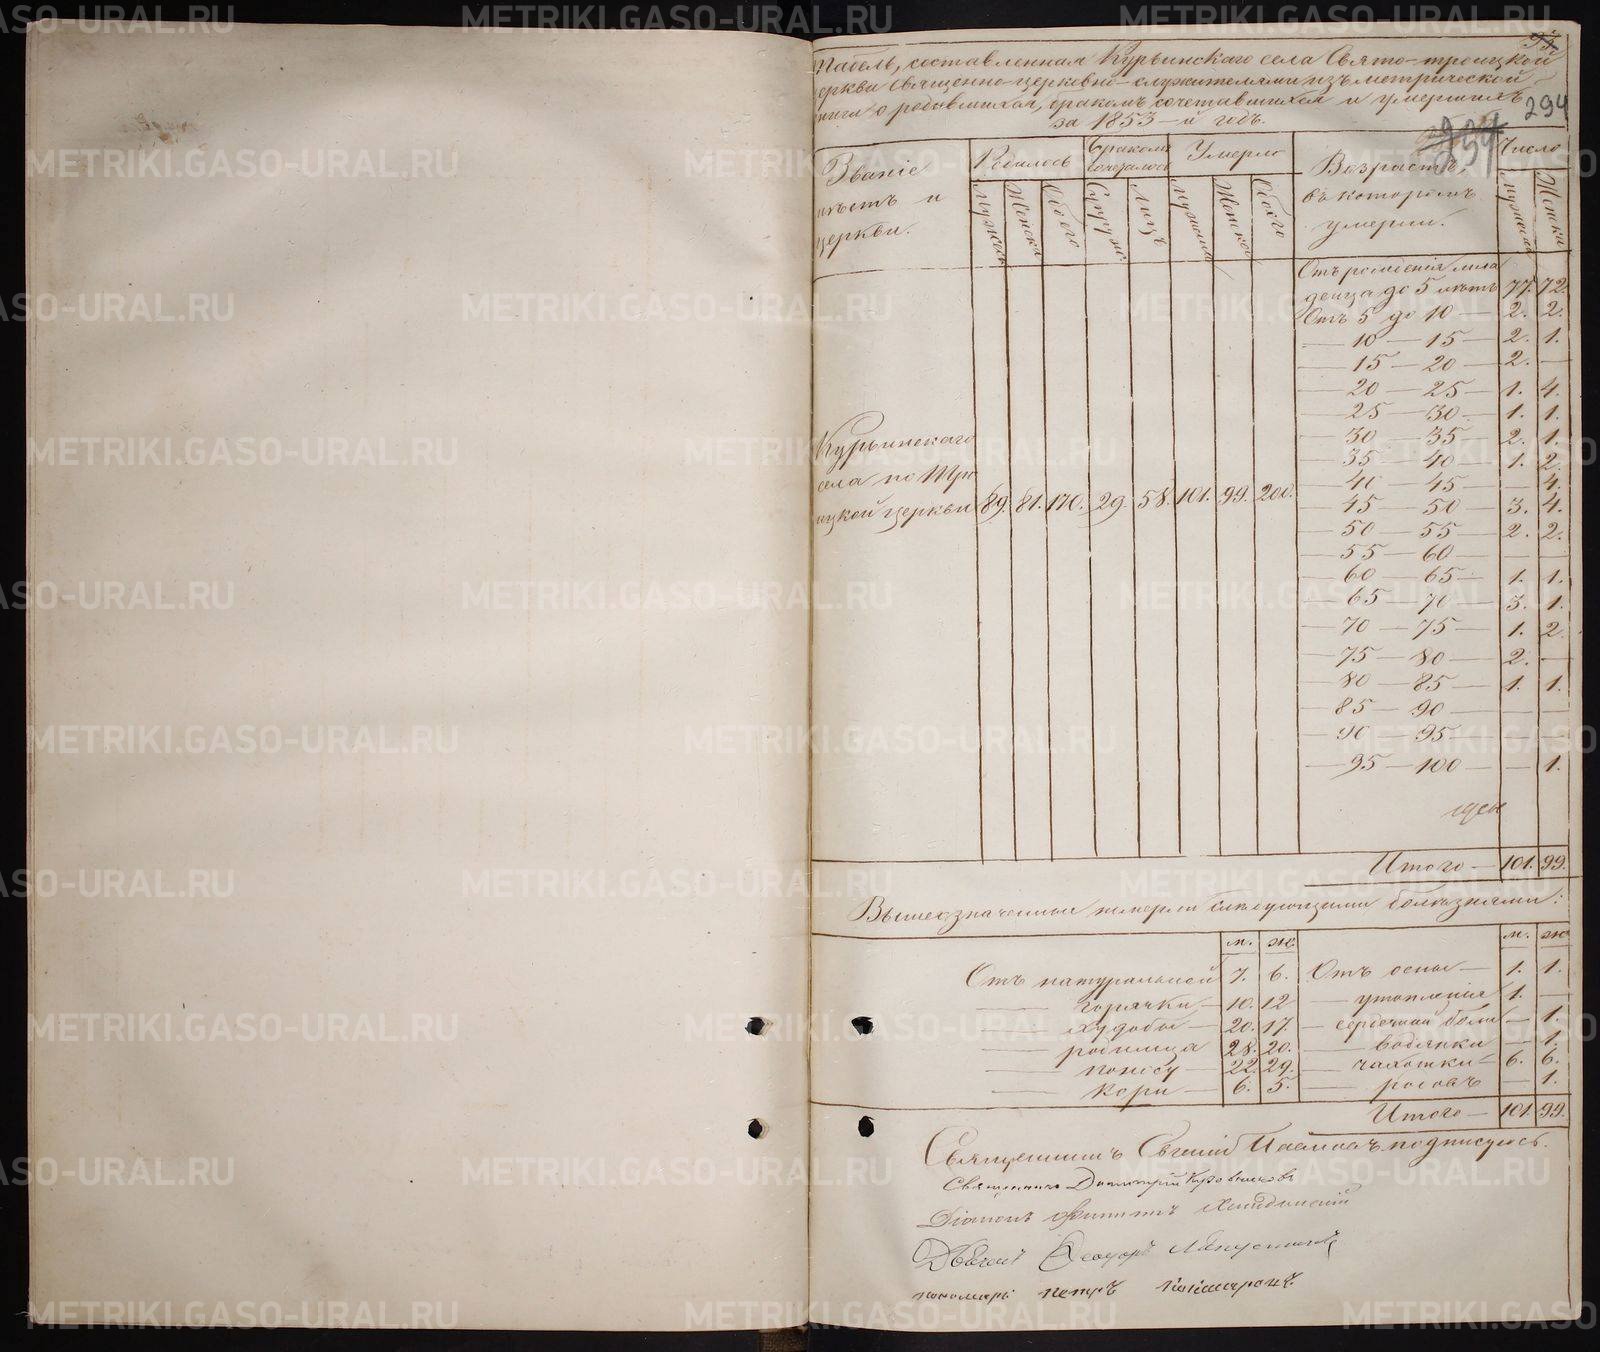 Табель, составленная Курьинскаго села Свято-троицкой
церкви священно-церковно-служителями изъ метрической
книги о родившихся, бракомъ сочетавшихся и умершихъ
за 1853-й годъ.
294
Званіе мѣстъ и церкви.
Родилось
Бракомъ сочеталось
Умерло
Возрастъ, въ которомъ умерли.
Число
Мужска Женска Обоего Супруж. Лицъ Мужска Женска Обоего Мужска Женска
Отъ рожденія мла
денца до 5 лѣтъ 77. 72
Отъ 5 до 10 — 2. 2.
— 10 — 15 — 2. 1.
— 15 — 20 — 2. —
— 20 — 25 — 1. 4.
— 25 — 30 — 1. 1.
— 30 — 35 — 2. 1.
— 35 — 40 — 1. 2.
— 40 — 45 — — 4.
— 45 — 50 — 3. 4.
— 50 — 55 — 2. 2.
— 55 — 60 — — —
— 60 — 65 — 1. 1.
— 65 — 70 — 3. 1.
— 70 — 75 — 1. 2.
— 75 — 80 — 2. —
— 80 — 85 — 1. 1.
— 85 — 90 — — —
— 90 — 95 — — —
— 95 — 100 — — 1.
Курьинскаго
села по Тро
ицкой церкви 89. 81. 170. 29. 58. 101. 99. 200.
Итого — 101. 99.
Вышеозначенные померли слѣдующими болѣзнями:
м. ж. м. ж.
Отъ натуральной 7. 6. Отъ оспы — 1. 1.
— горячки — 10. 12 — утопленія 1. —
— худобы — 20. 17. — сердечной боли — 1.
— родимца 28. 20. — водянки — 1.
— поносу — 22. 29. — чахотки — 6. 6.
— кори — 6. 5. — родовъ — 1.
Итого — 101. 99.
Священникъ Евгеній подписуюсь.
Священникъ Димитрій
Діаконъ
Дьячекъ Ѳеодоръ
пономарь Петръ
METRIKI.GASO-URAL.RU